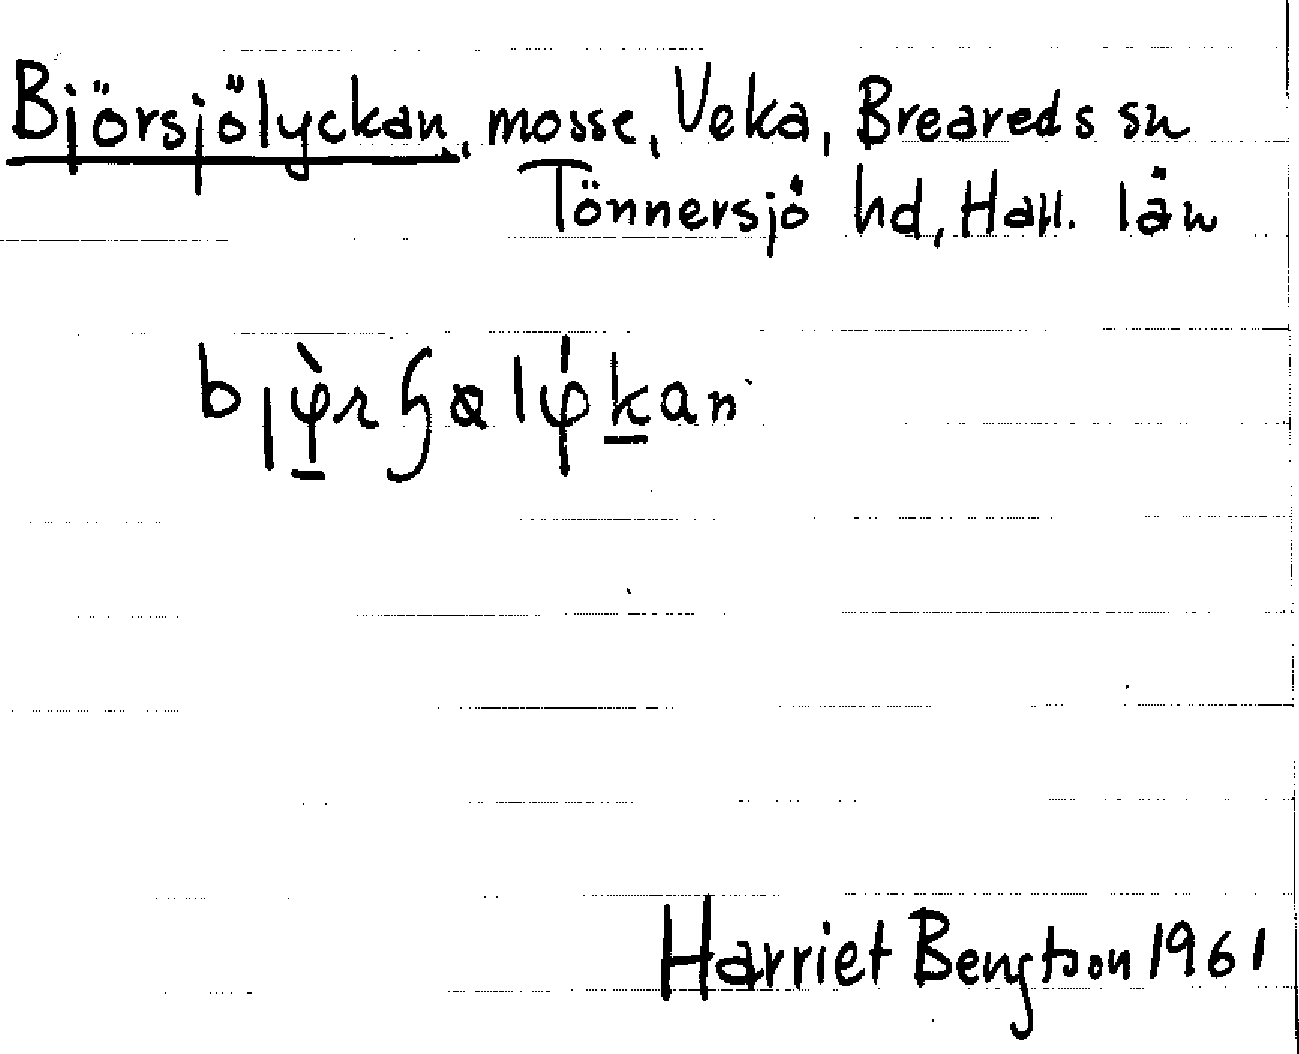 Björsjölyckan, mosse, Veka, Breareds sn
Tönnersjö hd, Hall. län
bjφ̠̀rʃαlφ́k̠an
Harriet Bengtson 1961